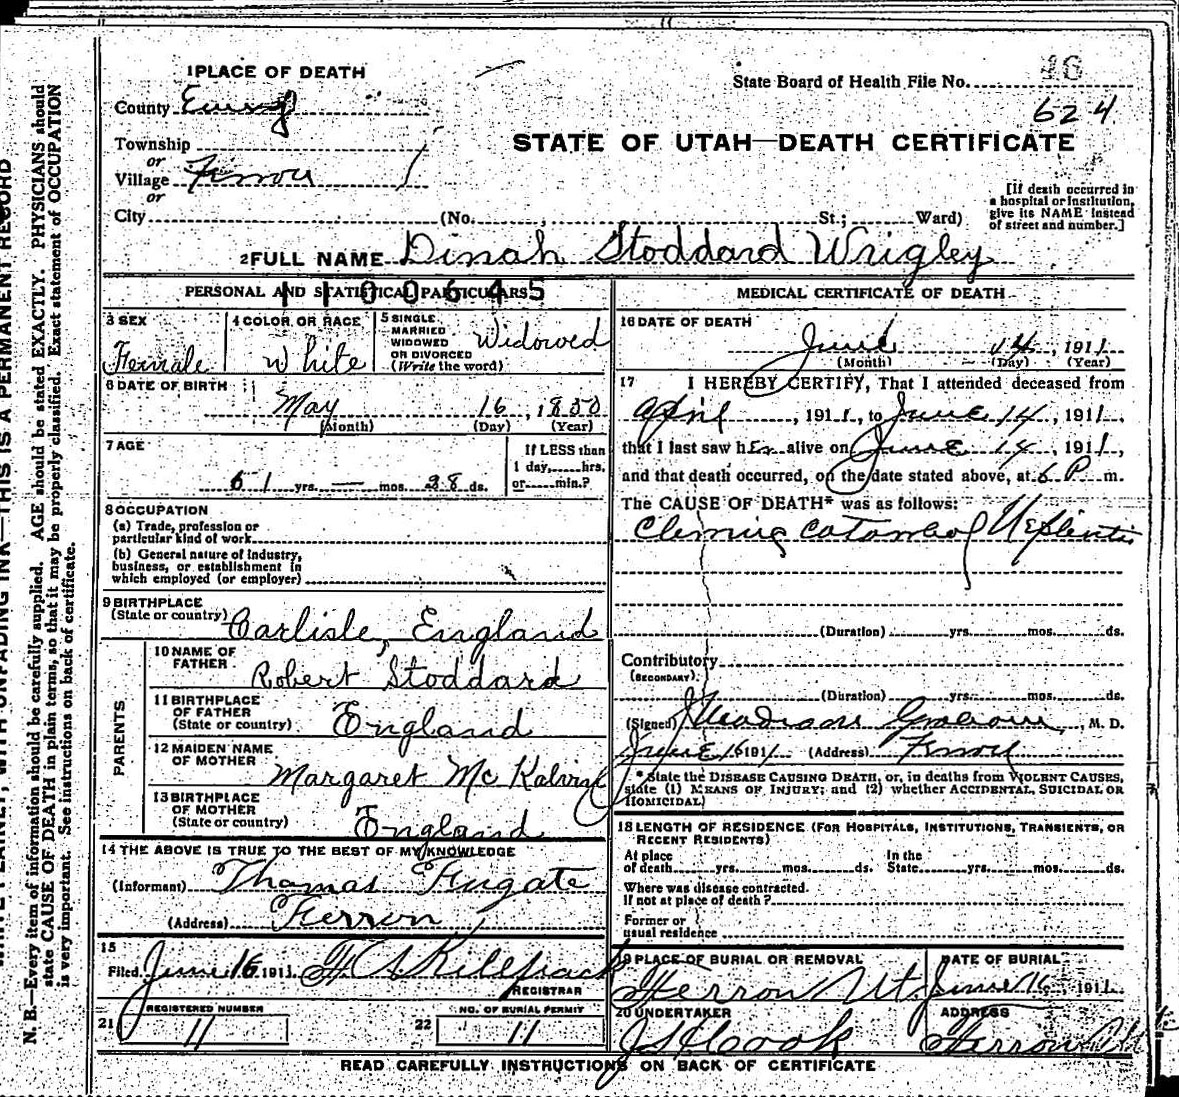 1 PLACE OF DEATH
State Board of Health File No. 16
County Emery
624
Township
STATE OF UTAH—DEATH CERTIFICATE
or
Village Ferron
or
[If death occurred in
a hospital or institution,
give its NAME instead
of street and number.]
City (No. St.; Ward)
2 FULL NAME Dinah Stoddard Wrigley
PERSONAL AND STATISTICAL PARTICULARS
1100645
3 SEX
Female
4 COLOR OR RACE
White
5 SINGLE
MARRIED
WIDOWED
OR DIVORCED
(Write the word)
Widowed
6 DATE OF BIRTH
May 16, 1850
(Month) (Day) (Year)
7 AGE
61 yrs. — mos. 28 ds.
If LESS than
1 day, hrs.
or min.?
8 OCCUPATION
(a) Trade, profession or
particular kind of work
(b) General nature of industry,
business, or establishment in
which employed (or employer)
9 BIRTHPLACE
(State or country) Carlisle, England
PARENTS
10 NAME OF
FATHER Robert Stoddard
11 BIRTHPLACE
OF FATHER
(State or country) England
12 MAIDEN NAME
OF MOTHER Margaret
13 BIRTHPLACE
OF MOTHER
(State or country) England
14 THE ABOVE IS TRUE TO THE BEST OF MY KNOWLEDGE
(Informant) Thomas Fugate
(Address) Ferron
15
Filed June 16 1911 Killpack
REGISTRAR
21 REGISTERED NUMBER
11
22 NO. OF BURIAL PERMIT
11
MEDICAL CERTIFICATE OF DEATH
16 DATE OF DEATH
June 14, 1911
(Month) (Day) (Year)
17 I HEREBY CERTIFY, That I attended deceased from
April, 1911, to June 14, 1911,
that I last saw her alive on June 14, 1911,
and that death occurred, on the date stated above, at 6 P m.
The CAUSE OF DEATH* was as follows:
(Duration) yrs. mos. ds.
Contributory
(SECONDARY)
(Duration) yrs. mos. ds.
(Signed) , M. D.
June 16 1911 (Address) Ferron
* State the DISEASE CAUSING DEATH, or, in deaths from VIOLENT CAUSES,
state (1) MEANS OF INJURY; and (2) whether ACCIDENTAL, SUICIDAL OR
HOMICIDAL)
18 LENGTH OF RESIDENCE (FOR HOSPITALS, INSTITUTIONS, TRANSIENTS, OR
RECENT RESIDENTS)
At place
of death yrs. mos. ds.
In the
State yrs. mos. ds.
Where was disease contracted.
If not at place of death?
Former or
usual residence
19 PLACE OF BURIAL OR REMOVAL
Ferron Ut.
DATE OF BURIAL
June 16 1911
20 UNDERTAKER
Cook
ADDRESS
Ferron Ut
READ CAREFULLY INSTRUCTIONS ON BACK OF CERTIFICATE
N. B.—Every item of information should be carefully supplied. AGE should be stated EXACTLY. PHYSICIANS should
state CAUSE OF DEATH in plain terms, so that it may be properly classified. Exact statement of OCCUPATION
is very important. See instructions on back of certificate.
WITH UNFADING INK—THIS IS A PERMANENT RECORD